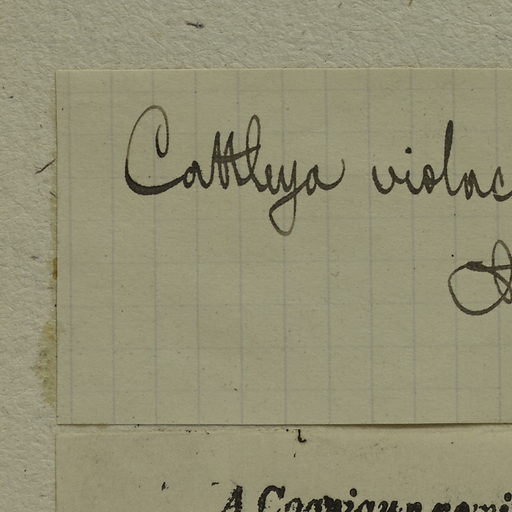 Cattleya violac
A Cogniaux